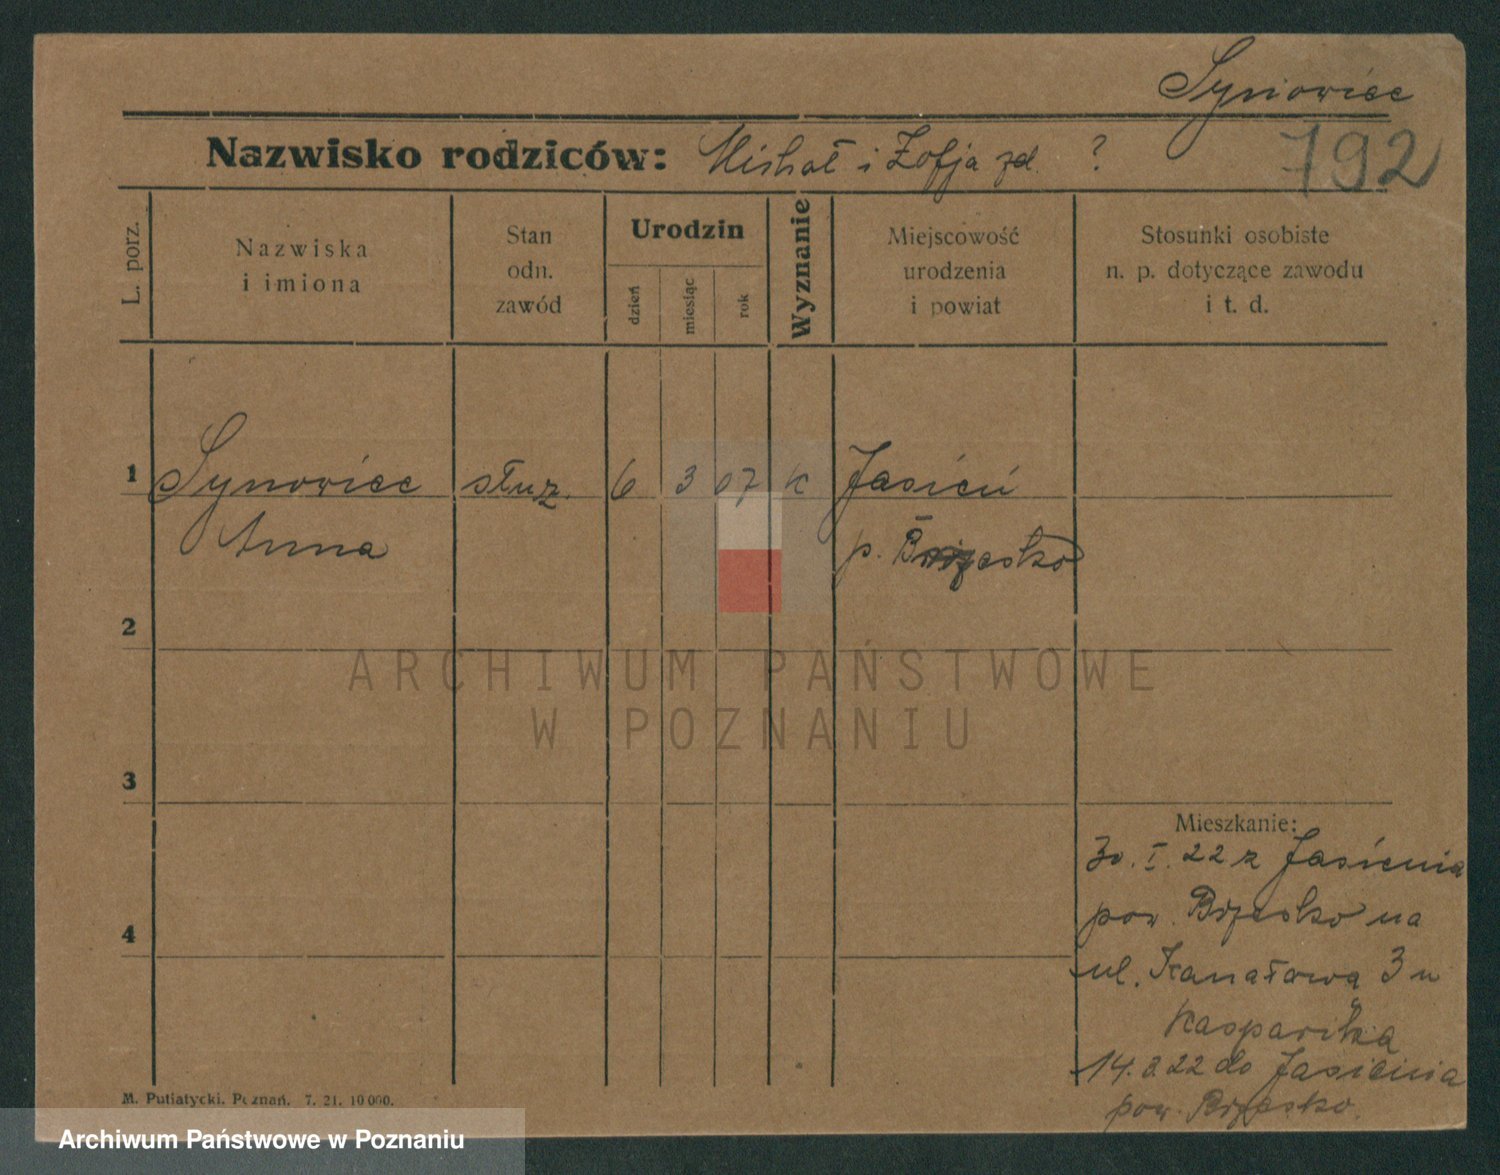 Synowiec
792
Nazwisko rodziców: Michał i Zofja zd. ?
L. porz.
Nazwiska
i imiona
Stan
odn.
zawód
Urodzin
dzień
miesiąc
rok
Wyznanie
Miejscowość
urodzenia
i powiat
Stosunki osobiste
n. p. dotyczące zawodu
i t. d.
1 Synowiec służ. 6 3 07 K Jasień
Anna p. Brzesko
2
ARCHIWUM PAŃSTWOWE
W POZNANIU
3
Mieszkanie:
30. I. 22 z Jasienia
pow. Brzesko na
4
ul. Kanałową 3 u
Kasparika
14. 2. 22 do Jasienia
pow. Brzesko.
M. Putiatycki. Poznań. 7. 21. 10 000.
Archiwum Państwowe w Poznaniu